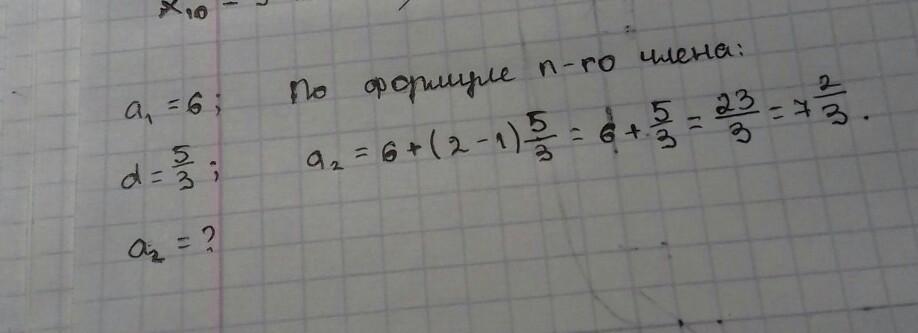 x₁₀ =
a₁ = 6; По формуле n-го члена:
d = 5/3; a₂ = 6 + (2 - 1) 5/3 = 6 + 5/3 = 23/3 = 7 2/3.
a₂ = ?